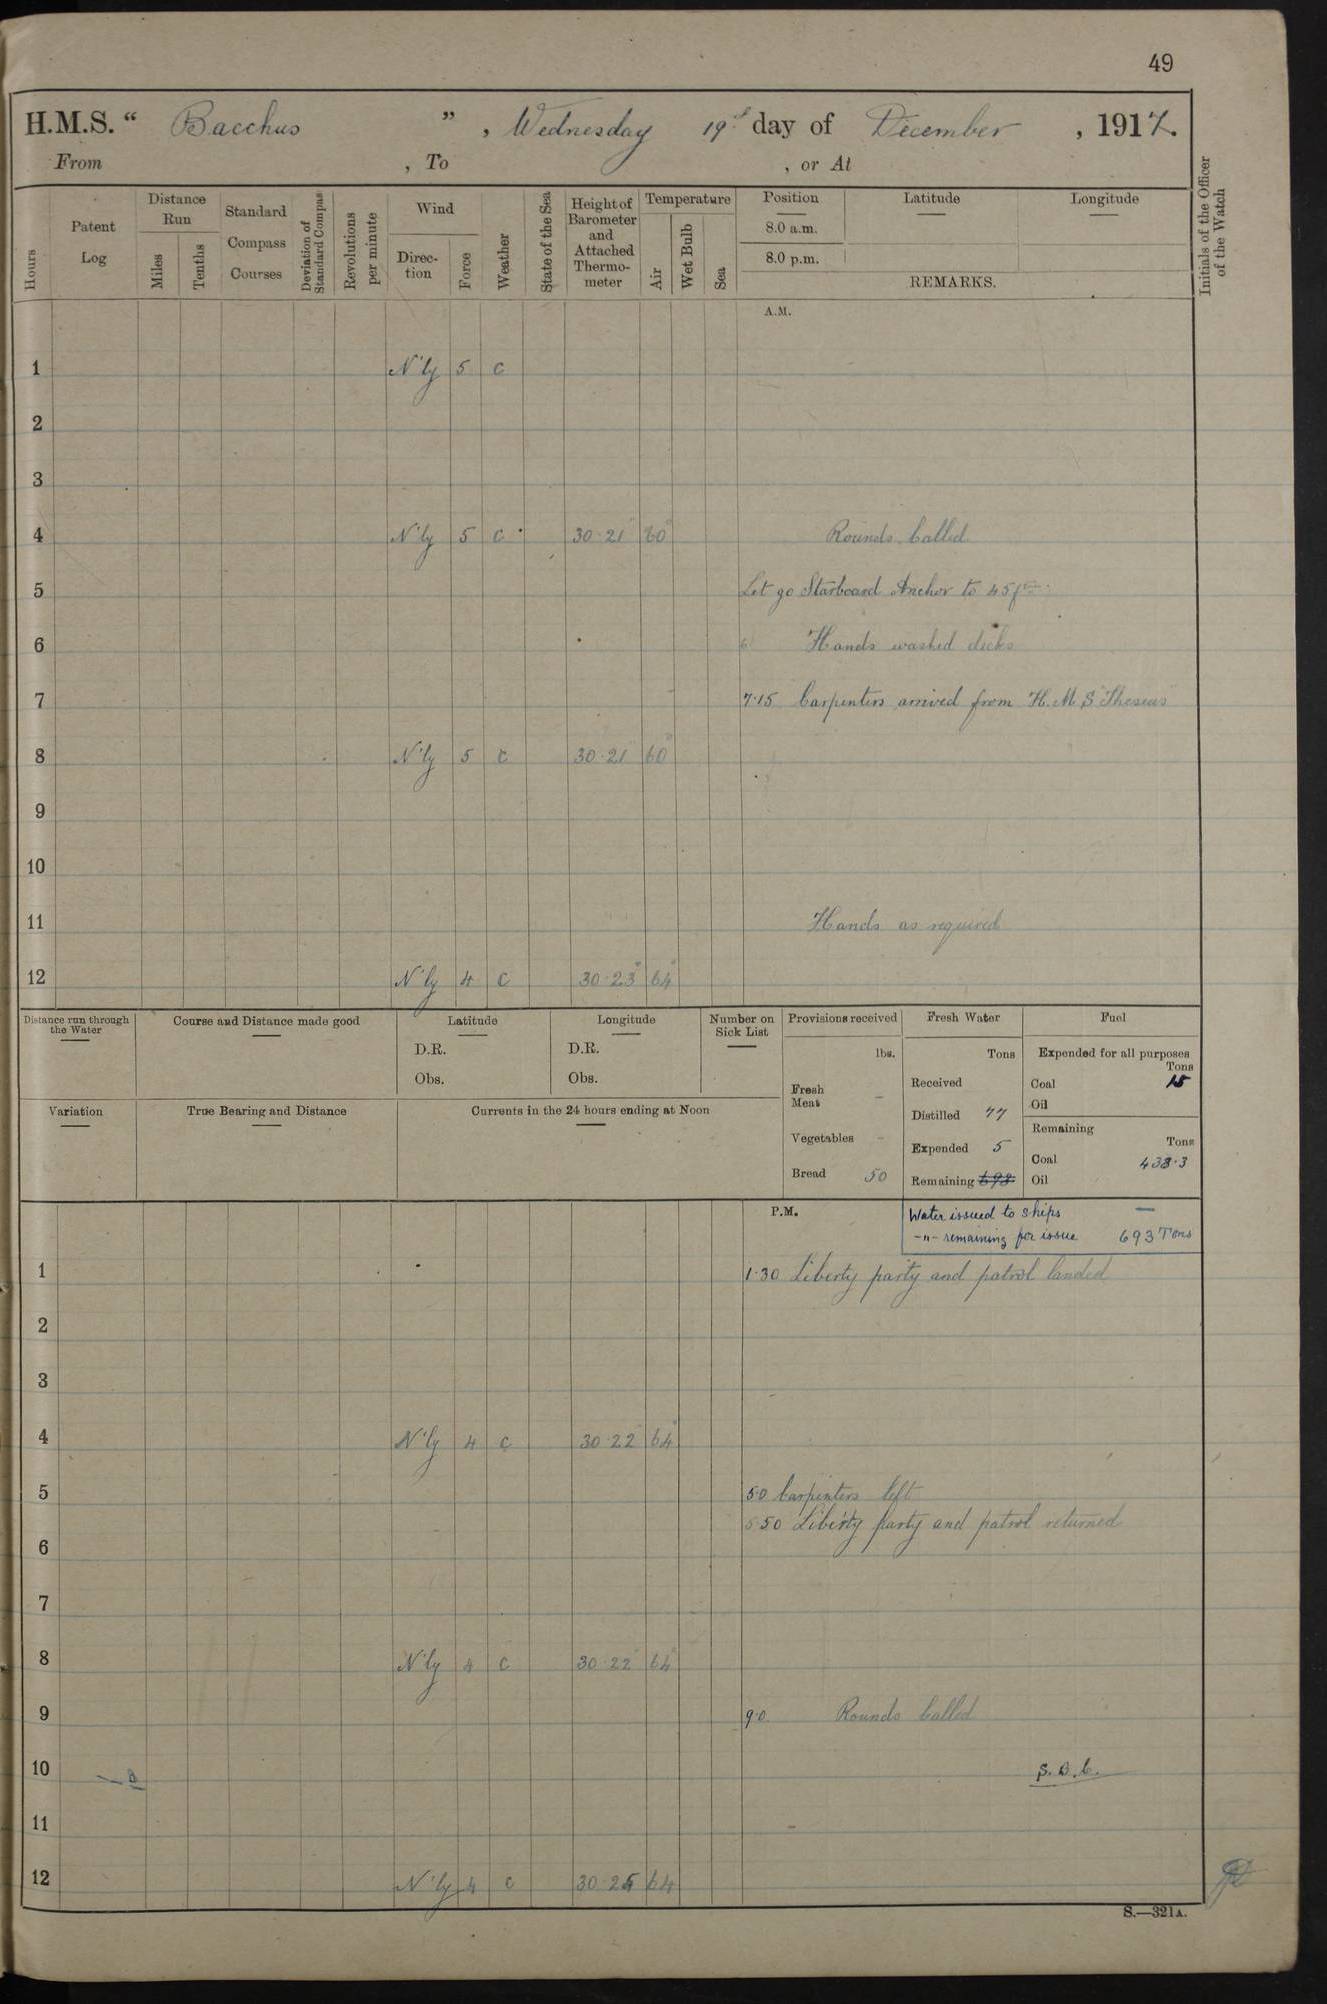 49
H.M.S. “ Bacchus ” , Wednesday 19th day of December , 1917.
From , To , or At
Hours
Patent Log
Distance Run
Miles
Tenths
Standard Compass Courses
Deviation of Standard Compass
Revolutions per minute
Wind
Direction
Force
Weather
State of the Sea
Height of Barometer and Attached Thermometer
Temperature
Air
Wet Bulb
Sea
Position
8.0 a.m.
8.0 p.m.
Latitude
Longitude
REMARKS.
Initials of the Officer of the Watch
A.M.
1 N'ly 5 C
2
3
4 N'ly 5 C 30·21 60° Rounds Called
5 Let go Starboard Anchor to 45 fms
6 6 Hands washed decks
7 7·15 Carpenters arrived from H.M.S "Theseus"
8 N'ly 5 C 30·21 60°
9
10
11 Hands as required
12 N'ly 4 C 30·23 64°
Distance run through the Water
Course and Distance made good
Latitude
D.R.
Obs.
Longitude
D.R.
Obs.
Number on Sick List
Variation
True Bearing and Distance
Currents in the 24 hours ending at Noon
Provisions received
lbs.
Fresh Meat -
Vegetables -
Bread 50
Fresh Water
Tons
Received
Distilled 77
Expended 5
Remaining 693
Fuel
Expended for all purposes
Tons
Coal 15
Oil
Remaining
Tons
Coal 433·3
Oil
P.M.
Water issued to ships —
-"- remaining for issue 693 Tons
1 1·30 Liberty party and patrol landed
2
3
4 N'ly 4 C 30·22 64°
5 5·0 Carpenters left
5·50 Liberty party and patrol returned
6
7
8 N'ly 4 C 30·22 64°
9 9·0 Rounds Called
10 S.B.C.
11
12 N'ly 4 C 30·25 64
S.—321A.